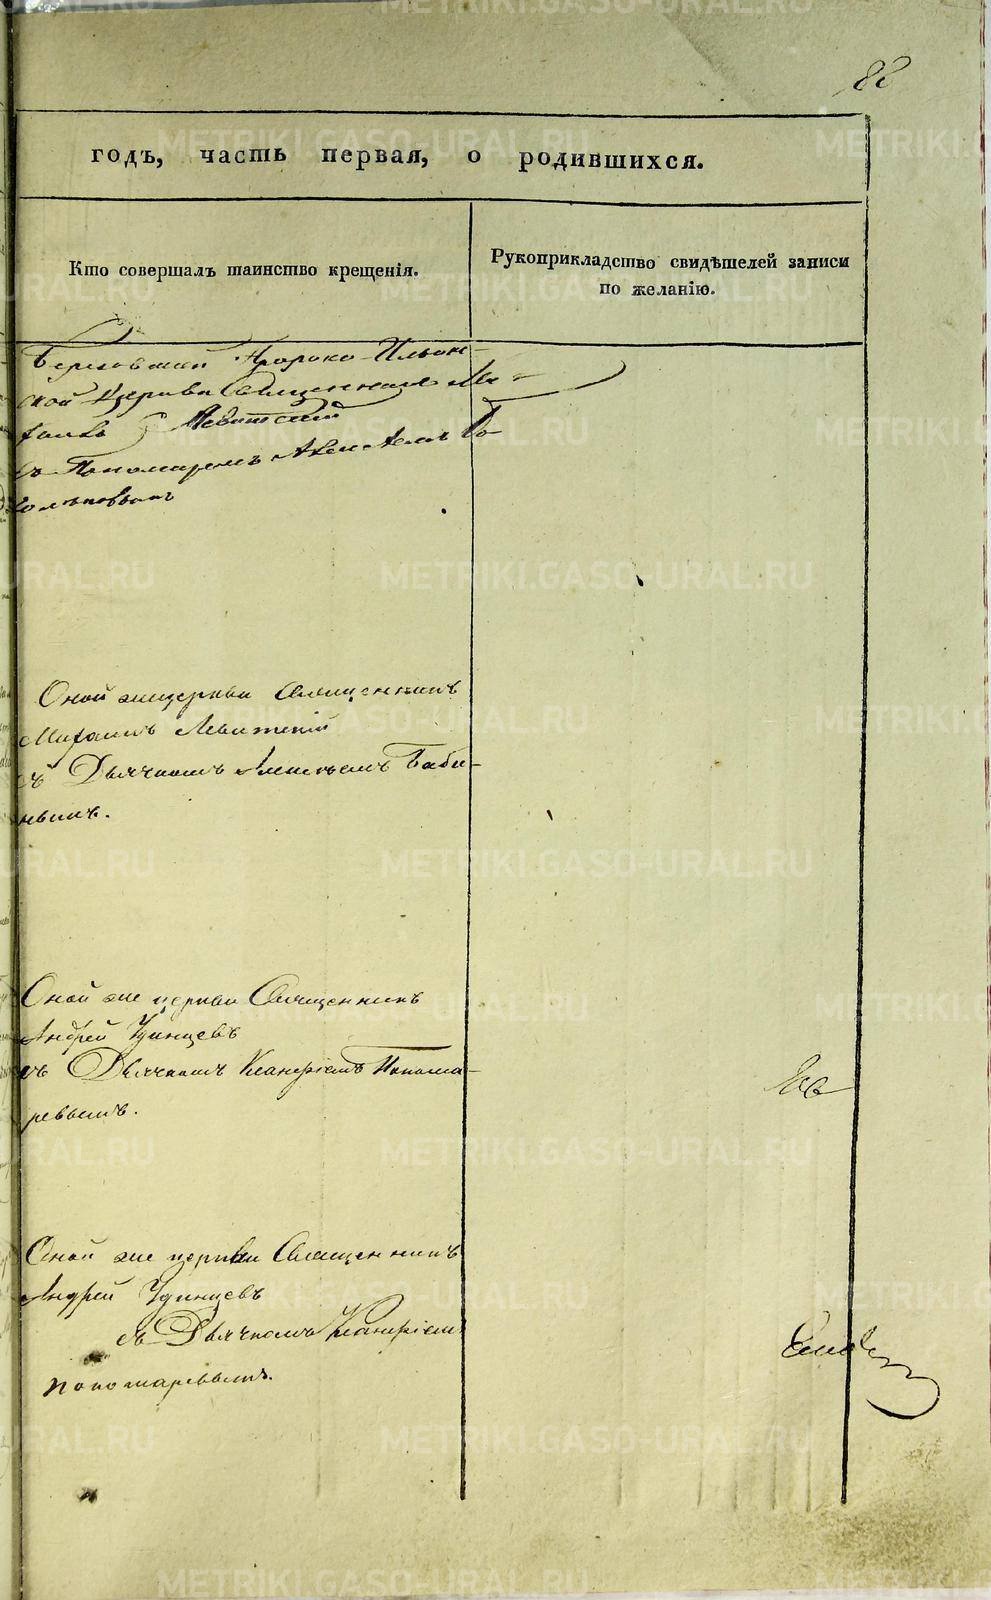 88
годъ, часть первая, о родившихся.
Кто совершалъ таинство крещенія.
Рукоприкладство свидѣтелей записи
по желанію.
Пророко-Ильин-
ской Церкви Священникъ Ми-
хаилъ Левитскій
съ Пономаремъ
Оной же церкви Священникъ
Михаилъ Левитскій
съ Дьячкомъ Алексѣемъ Баби-
нымъ.
Оной же церкви Священникъ
Андрей Удинцевъ
съ Дьячкомъ Понома-
ревымъ.
Оной же церкви Священникъ
Андрей Удинцевъ
съ Дьячкомъ
Пономаревымъ.
METRIKI.GASO-URAL.RU